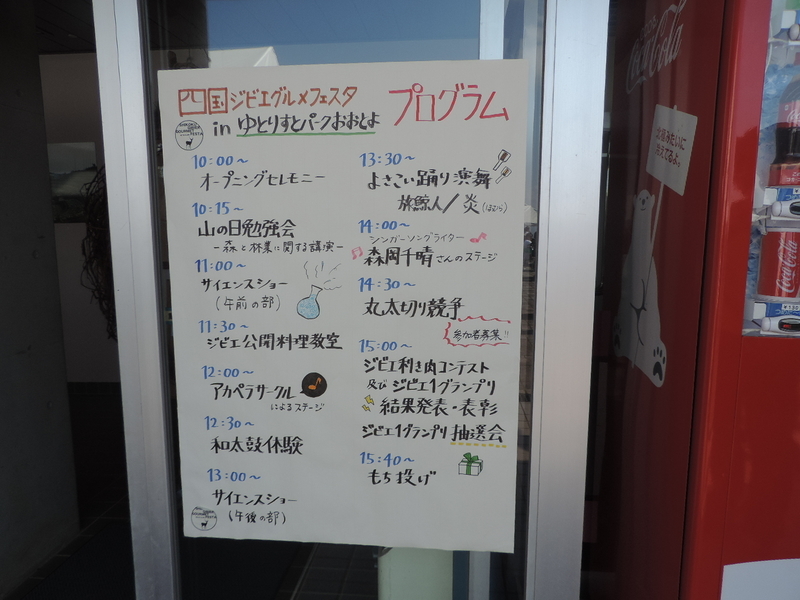 四国ジビエグルメフェスタ プログラム
in ゆとりすとパークおおとよ
10:00〜
オープニングセレモニー
10:15〜
山の日勉強会
ー森と林業に関する講演ー
11:00〜
サイエンスショー
(午前の部)
11:30〜
ジビエ公開料理教室
12:00〜
アカペラサークル
によるステージ
12:30〜
和太鼓体験
13:00〜
サイエンスショー
(午後の部)
13:30〜
よさこい踊り演舞
旅鯨人/炎(ほむら)
14:00〜
シンガーソングライター
森岡千晴さんのステージ
14:30〜
丸太切り競争
参加者募集!!
15:00〜
ジビエ利き肉コンテスト
及びジビエ1グランプリ
結果発表・表彰
ジビエ1グランプリ抽選会
15:40〜
もち投げ
Coca-Cola
冷えてるよっ
Coca-Cola